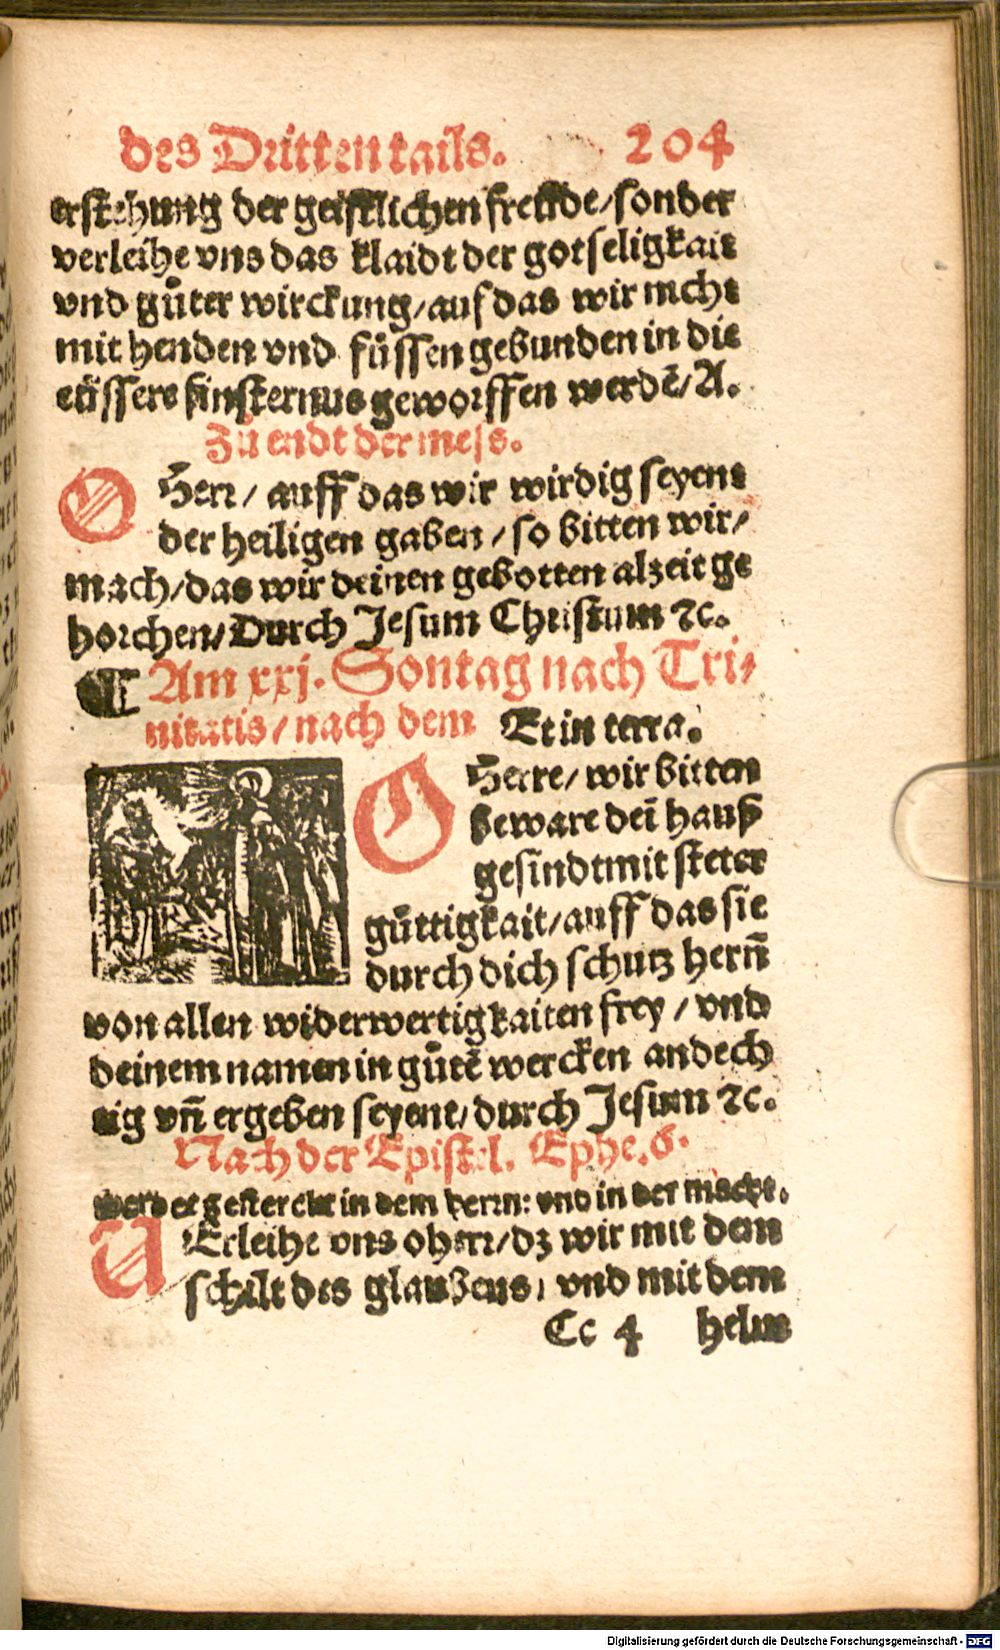 des Dritten tails. 204
erstehung der geistlichen freüde/sonder
verleihe vns das klaidt der gotseligkait
vnd gůter wirckung/auf das wir nicht
mit henden vnd füssen gebunden in die
eüssere finsternus geworffen werdē/A.
Zů endt der mess.
O Herr/ auff das wir wirdig seyent
der heiligen gaben/so bitten wir/
mach/das wir deinen gebotten alzeit ge
horchen/Durch Jesum Christum ⁊c.
¶ Am xxj. Sontag nach Tri-
nitatis/nach dem Et in terra.
O Herre/wir bitten
beware deī hauß
gesindt mit steter
gůttigkait/auff das sie
durch dich schutz herrñ
von allen widerwertigkaiten frey/vnd
deinem namen in gůtē wercken andech
tig vñ ergeben seyent/durch Jesum ⁊c.
Nach der Epistel. Ephe. 6.
werdet gesterckt in dem herrn: vnd in der macht.
VErleihe vns o herr/dz wir mit dem
schilt des glaubens, vnd mit dem
Cc 4 helm
Digitalisierung gefördert durch die Deutsche Forschungsgemeinschaft - DFG